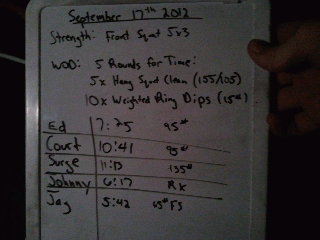 September 17th 2012
Strength: Front Squat 5x3
WOD: 5 Rounds for Time:
5x Hang Squat Clean (155/105)
10x Weighted Ring Dips (15#)
Ed 7:25 95#
Court 10:41 95#
Surge 11:13 135#
Johnny 6:17 RX
Jay 5:42 65# FS